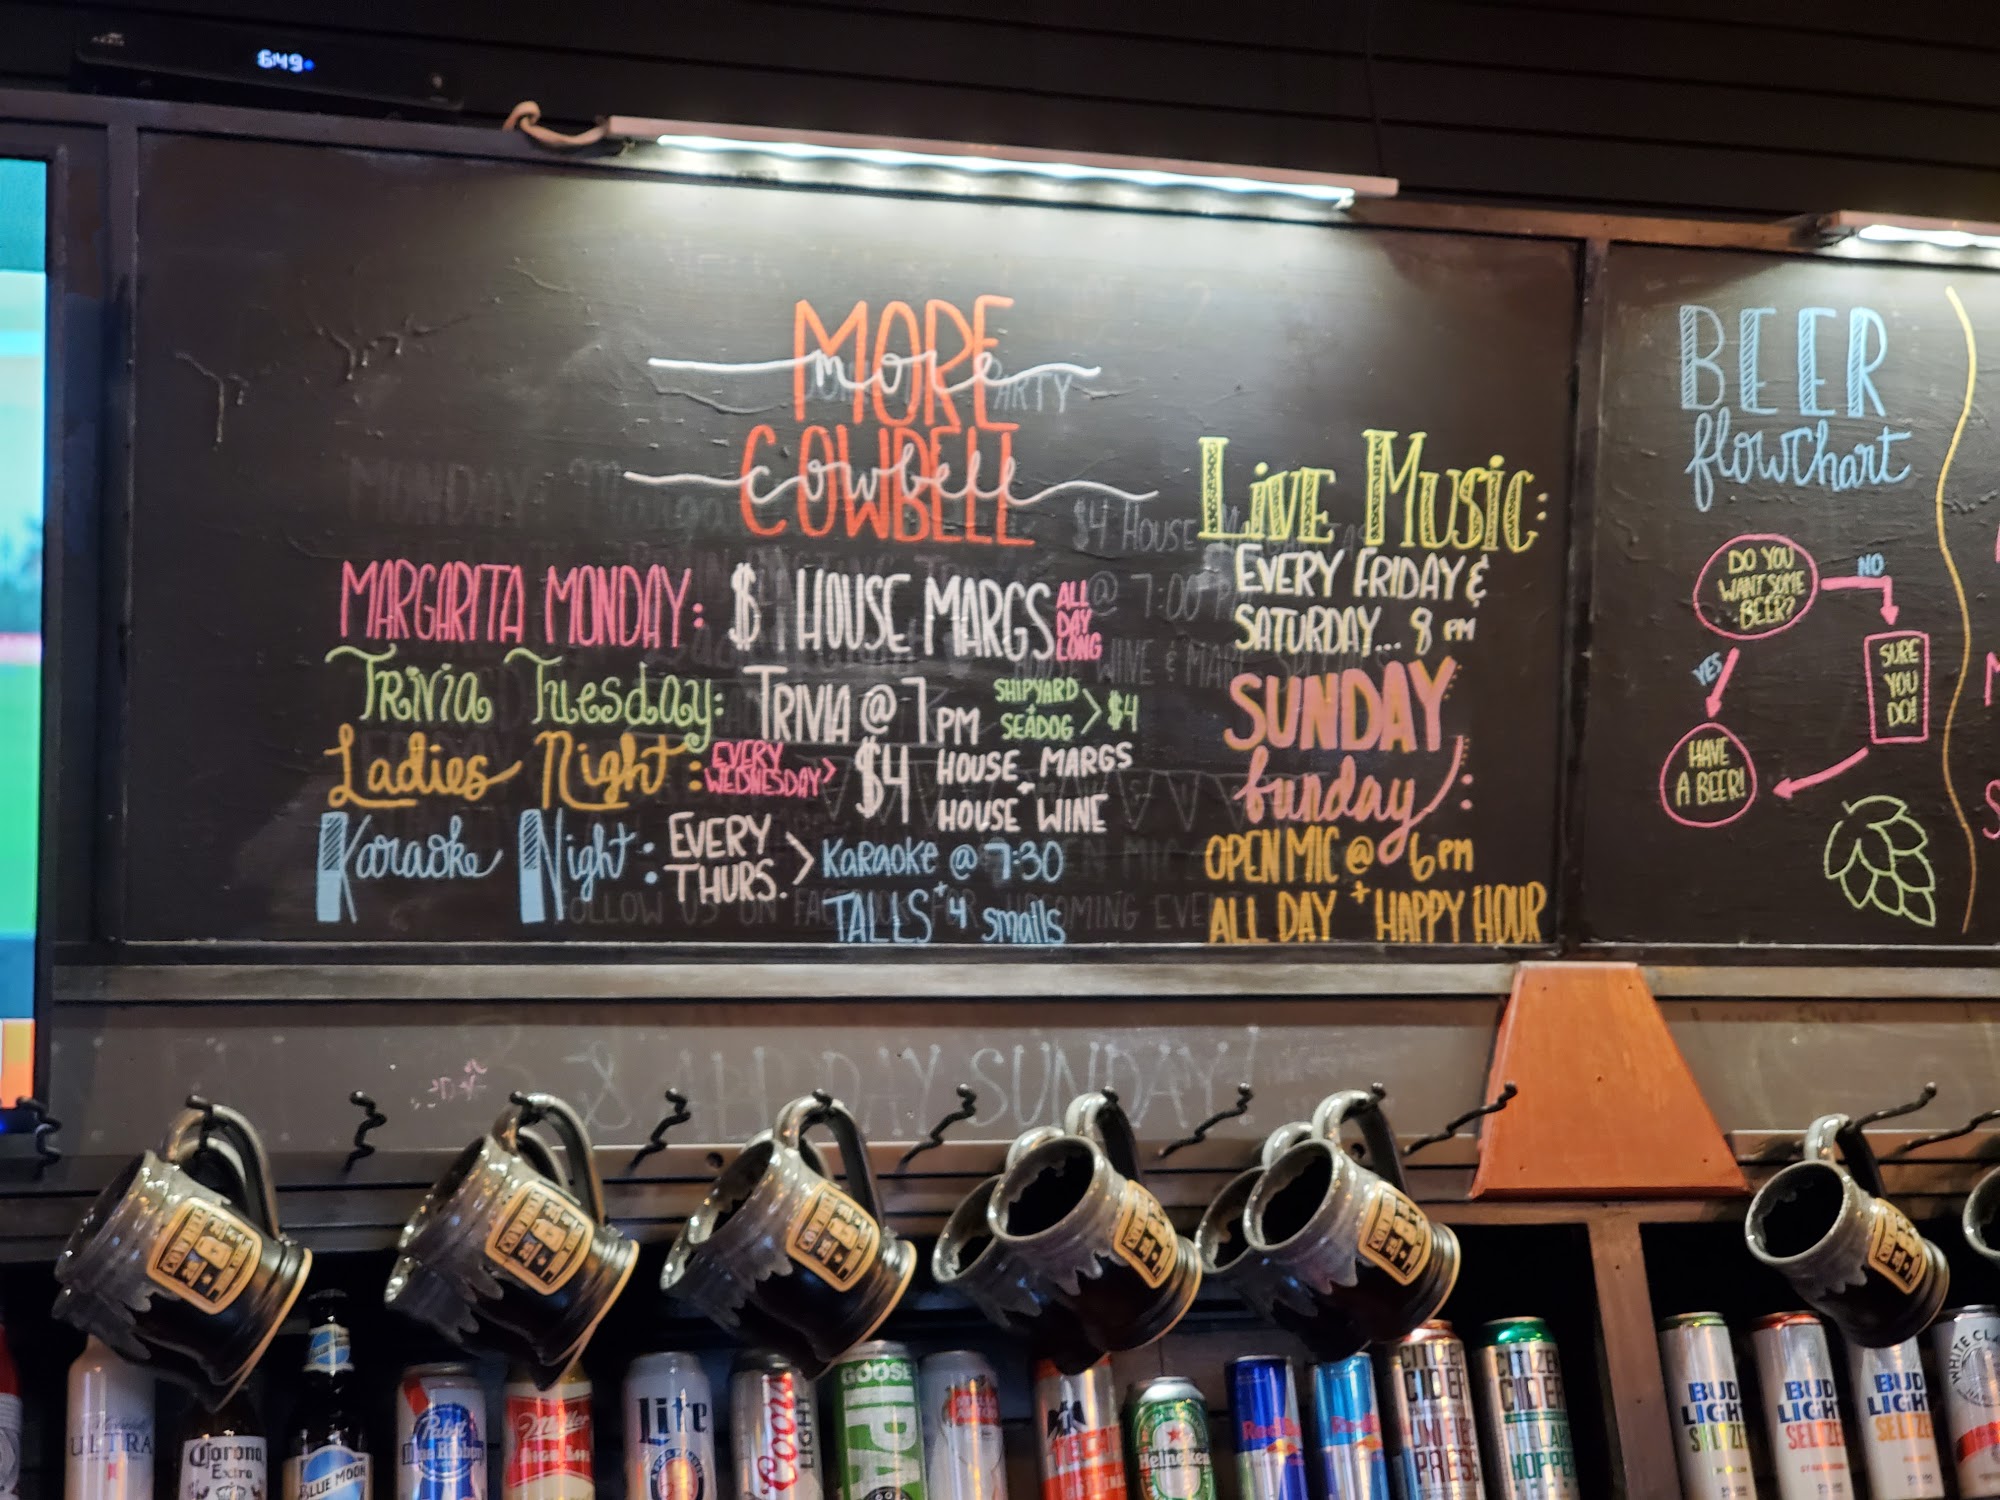 6:49
MORE
more
COWBELL
cowbell
MARGARITA MONDAY: $ HOUSE MARGS ALL DAY LONG
Trivia Tuesday: TRIVIA @ 7 PM SHIPYARD + SEADOG > $4
Ladies Night: EVERY WEDNESDAY > $4 HOUSE MARGS + HOUSE WINE
Karaoke Night: EVERY THURS. > KARAOKE @ 7:30
+
TALLS 4 smalls
LIVE MUSIC:
EVERY FRIDAY &
SATURDAY... 8 PM
SUNDAY
funday:
OPEN MIC @ 6 PM
+
ALL DAY HAPPY HOUR
BEER
flowchart
DO YOU
WANT SOME
BEER?
NO
YES
SURE
YOU
DO!
HAVE
A BEER!
PARTY
MONDAY:
$4 HOUSE
@ 7:00
WINE &
FOLLOW US ON
& ALL DAY SUNDAY!
ULTRA
Corona
Extra
BLUE MOON
Pabst
Blue Ribbon
Miller
High Life
Lite
Coors
LIGHT
GOOSE
IPA
TECATE
Heineken
Red Bull
Red Bull
CITIZEN
CIDER
UNIFIED
PRESS
CITIZEN
CIDER
THE LAKE
HOPPER
BUD
LIGHT
SELTZER
BUD
LIGHT
SELTZER
BUD
LIGHT
SELTZER
WHITE CLAW